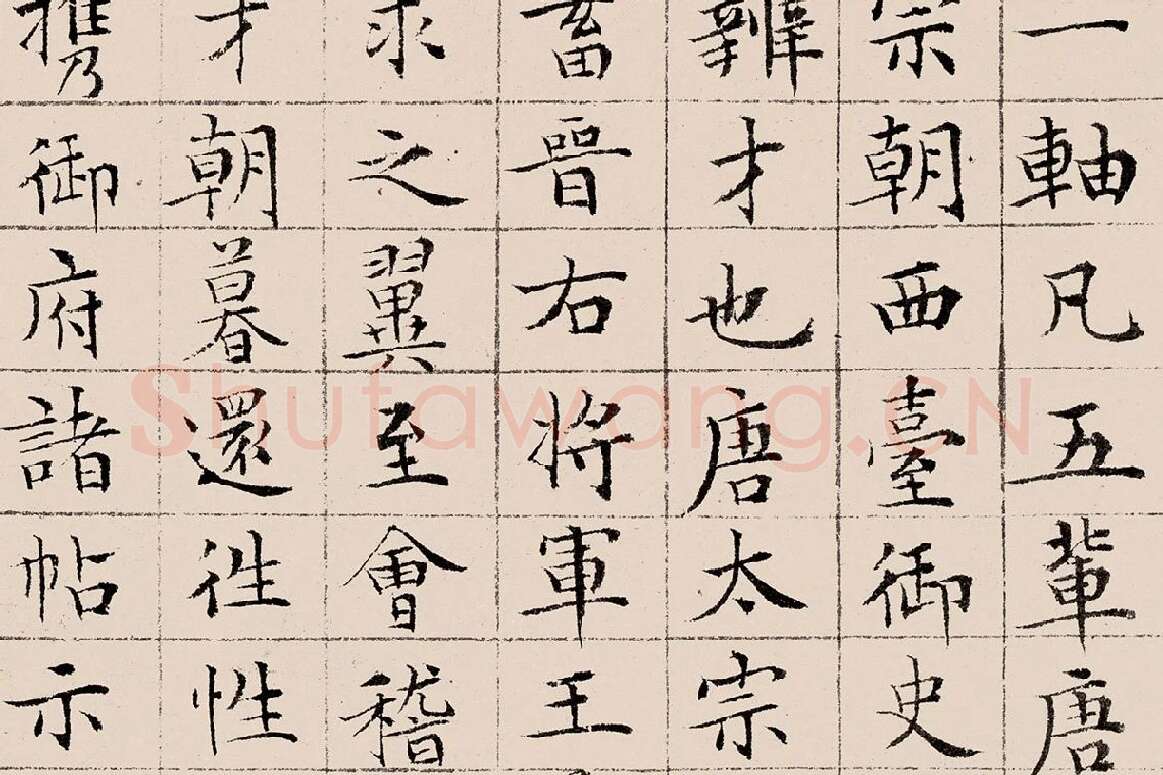 一軸凡五輩唐
宗朝西臺御史
辨才也唐太宗
畜晉右將軍王
求之翼至會稽
才朝暮還徃性
携御府諸帖示
Shufawang.CN